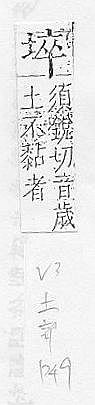 埣
須銳切音歲
土不黏者
V3 土部 1249